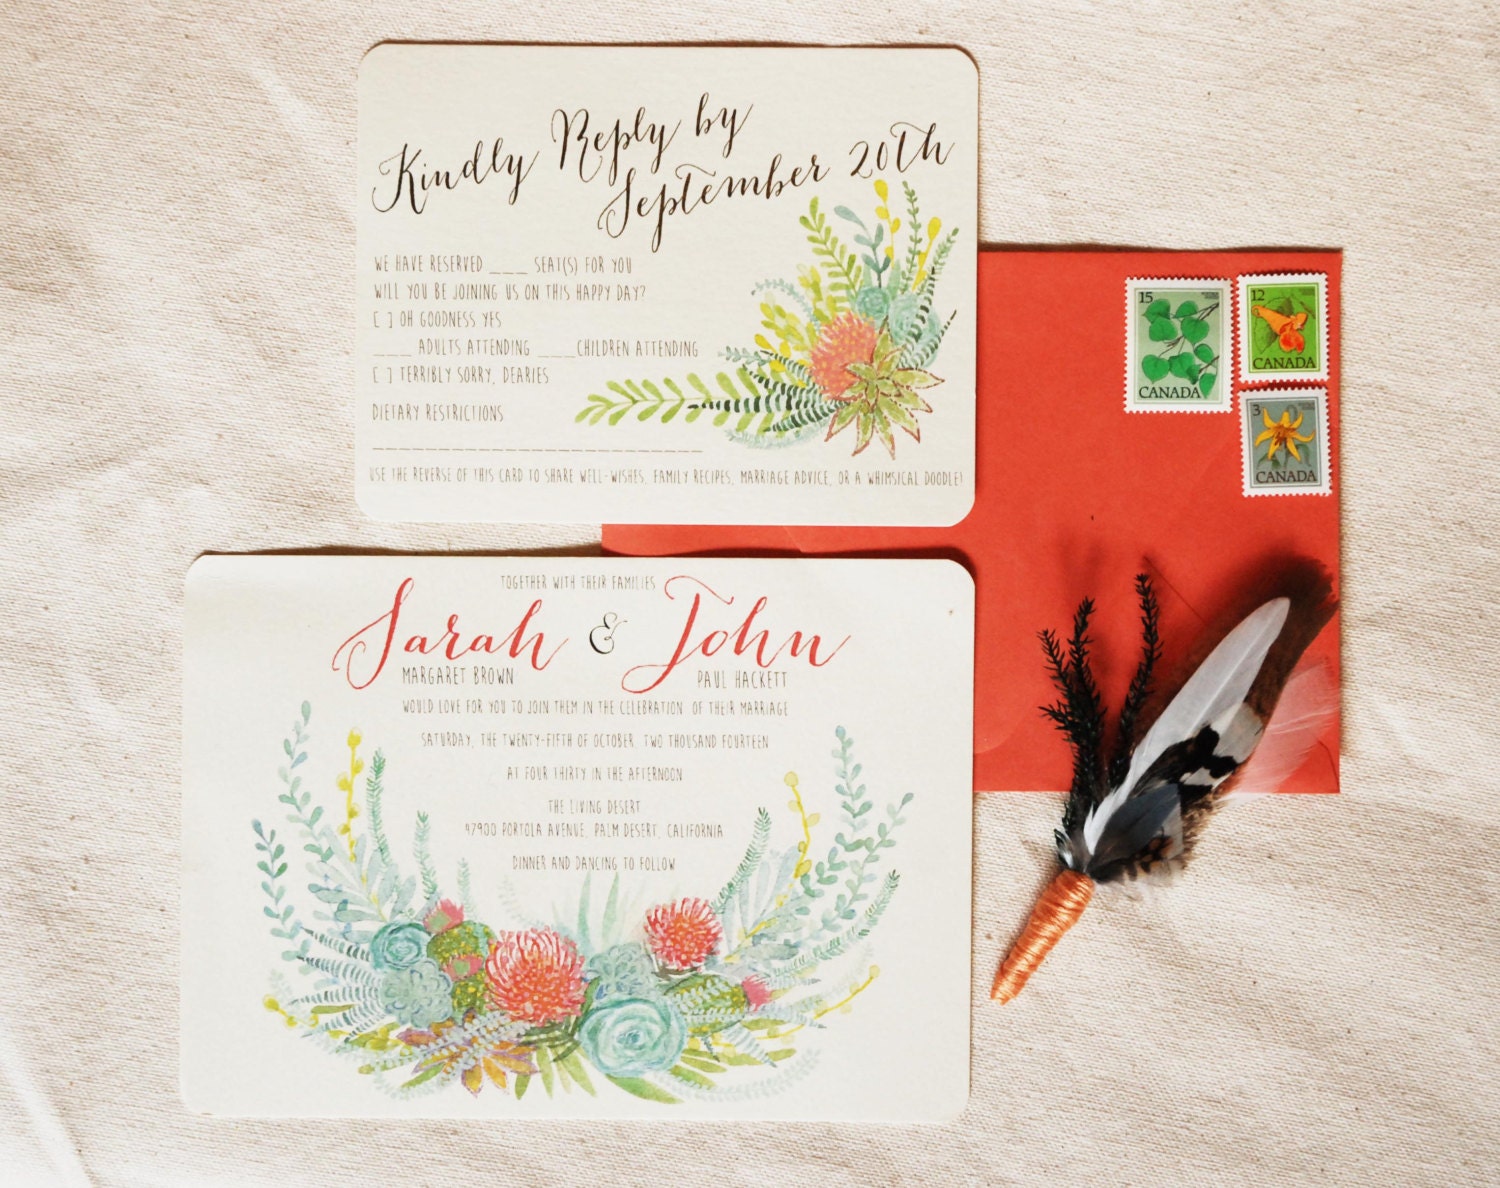 Kindly Reply by
September 20th
WE HAVE RESERVED ___ SEAT(S) FOR YOU
WILL YOU BE JOINING US ON THIS HAPPY DAY?
[ ] OH GOODNESS YES
___ ADULTS ATTENDING ___CHILDREN ATTENDING
[ ] TERRIBLY SORRY, DEARIES
DIETARY RESTRICTIONS
USE THE REVERSE OF THIS CARD TO SHARE WELL-WISHES, FAMILY RECIPES, MARRIAGE ADVICE, OR A WHIMSICAL DOODLE!
15
CANADA
12
CANADA
3
CANADA
TOGETHER WITH THEIR FAMILIES
Sarah & John
MARGARET BROWN PAUL HACKETT
WOULD LOVE FOR YOU TO JOIN THEM IN THE CELEBRATION OF THEIR MARRIAGE
SATURDAY, THE TWENTY-FIFTH OF OCTOBER TWO THOUSAND FOURTEEN
AT FOUR THIRTY IN THE AFTERNOON
THE LIVING DESERT
47900 PORTOLA AVENUE, PALM DESERT, CALIFORNIA
DINNER AND DANCING TO FOLLOW